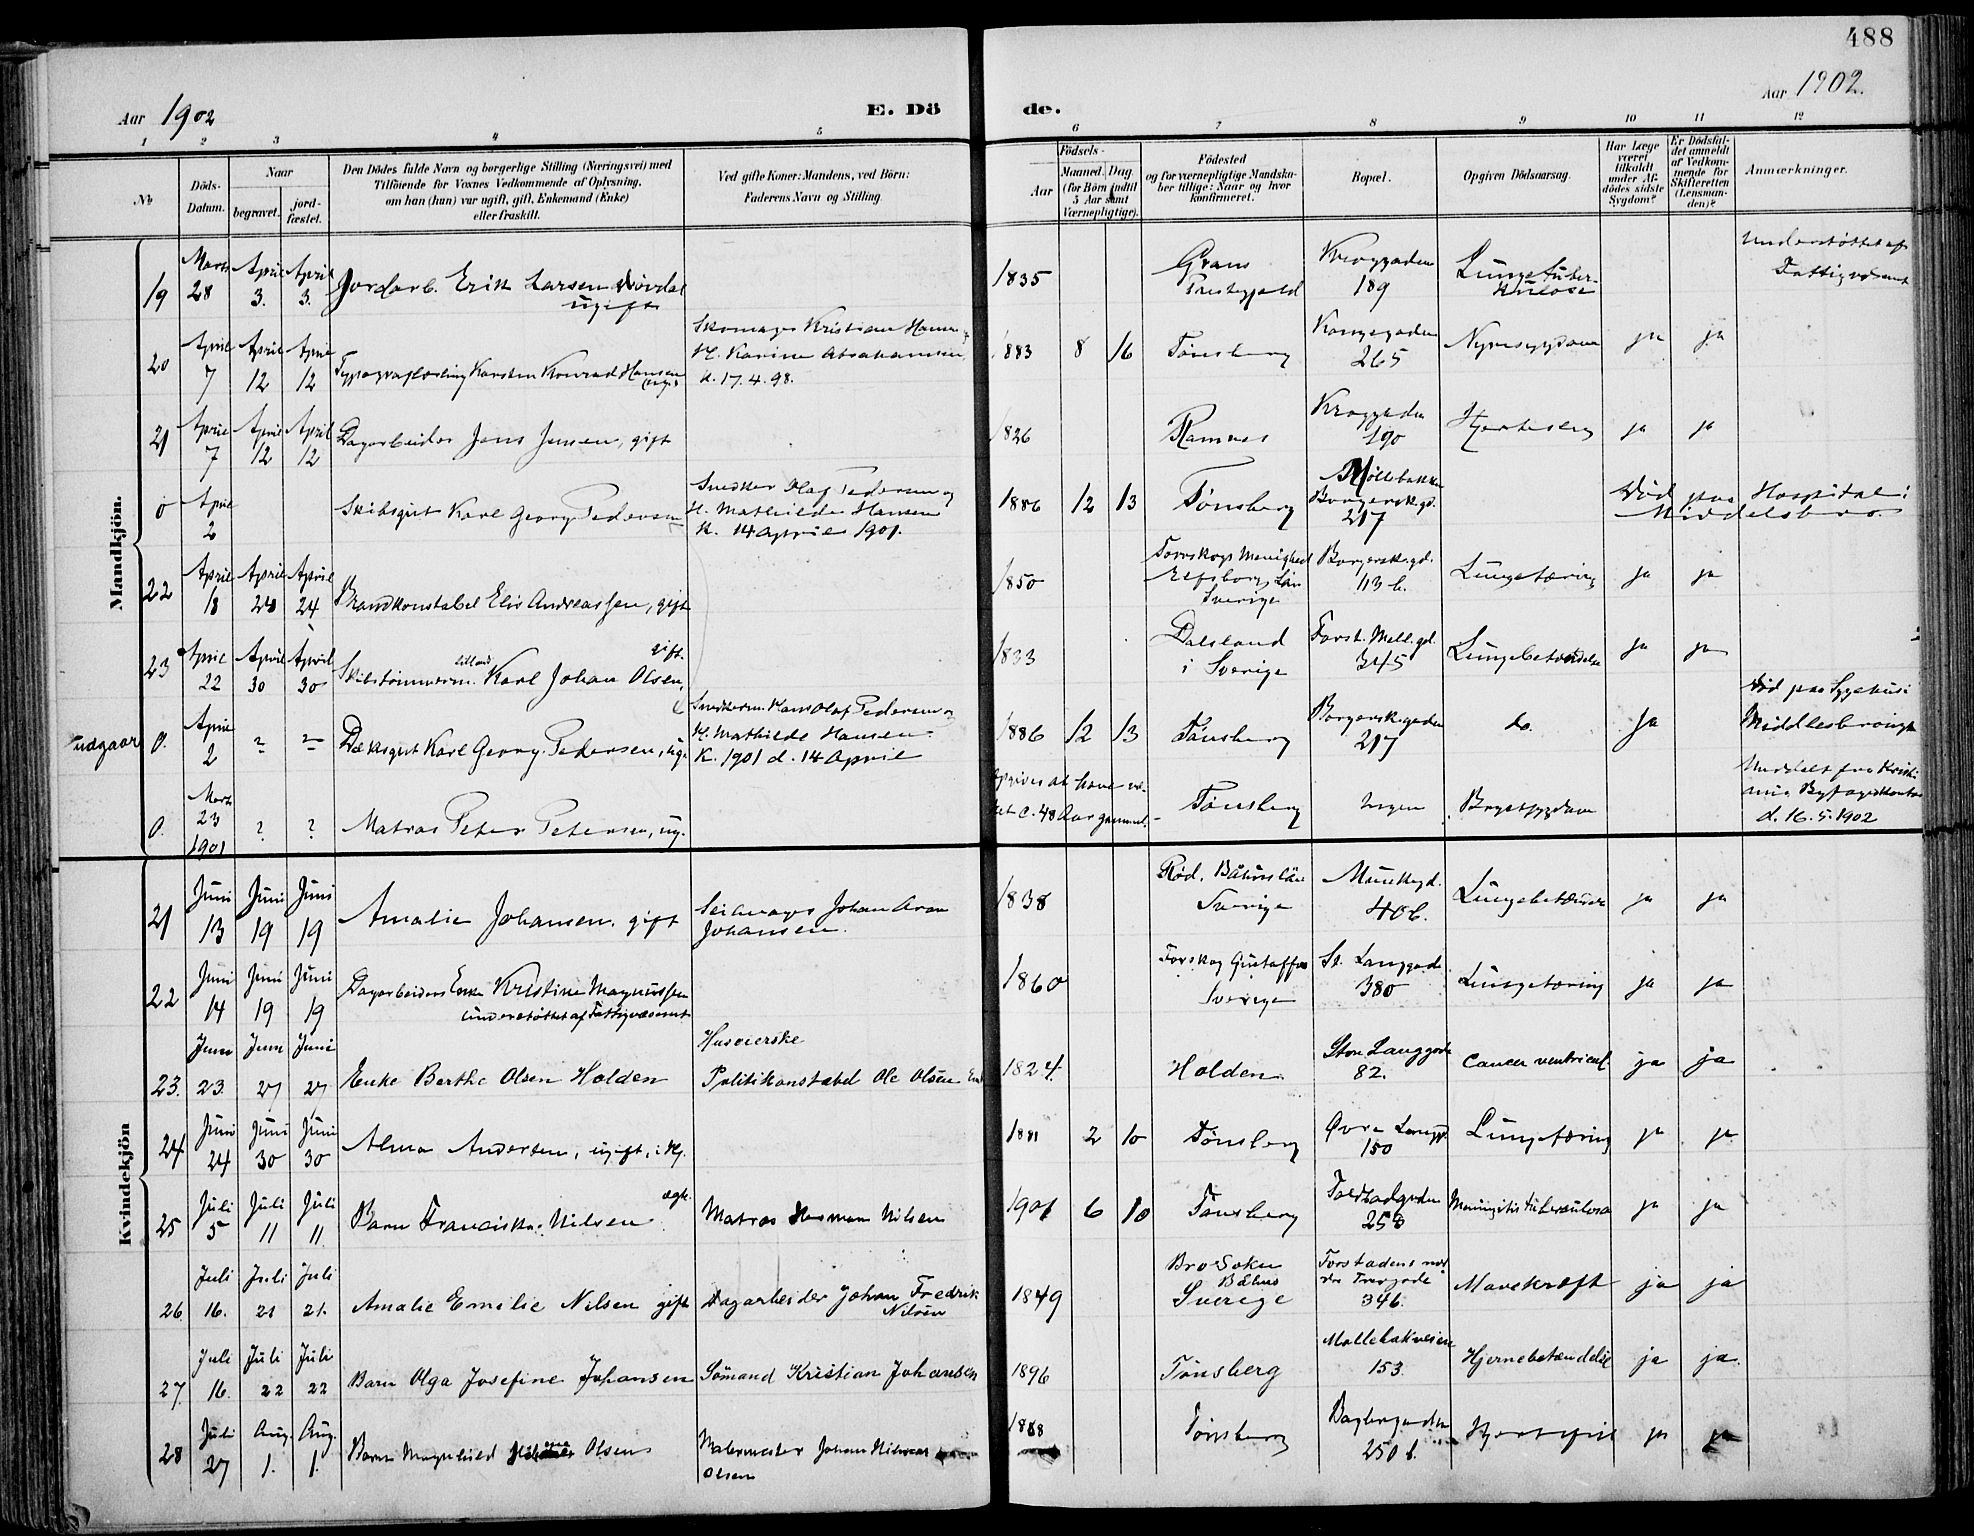 488
Aar 1902
E. Dö
de.
Aar 1902.
1 2 3 4 5 6 7 8 9 10 11 12
№
Döds-Datum.
Naar
begravet.
jord-fæstet.
Den Dödes fulde Navn og borgerlige Stilling (Næringsvei) med
Tilföiende for Voxnes Vedkommende af Oplysning,
om han (hun) var ugift, gift, Enkemand (Enke)
eller fraskilt.
Ved gifte Koner: Mandens, ved Börn:
Faderens Navn og Stilling.
Födsels-
Aar
Maaned. Dag.
(for Börn indtil
5 Aar samt
Værnepligtige).
Födested
og for værnepligtige Mandska-
ber tillige: Naar og hvor
konfirmeret.
Bopæl.
Opgiven Dödsaarsag.
Har Læge
været
tilkaldt
under Af-
dödes sidste
Sygdom?
Er Dödsfal-
det anmeldt
af Vedkom-
mende for
Skifteretten
(Lensman-
den)?
Anmærkninger.
Mandkjön.
19 Marts 28 April 3. April 3. Jordarb. Erik Larsen ugift 1835 Grans Præstegjeld 189 Lungetuberkulose Understöttet af Fattigvæsenet
20 April 7 April 12 April 12 Karsten Konrad Hansen Skomager Kristian Hansen og H. Karine Abrahamsen K. 17.4.98. 1883 8 16 Tönsberg Kongegaden 265 Nyresygdom ja ja
21 April 7 April 12 April 12 Dagarbeider Jens Jensen, gift 1826 Ramnes 190 ja ja
0 April 2 Skibsgut Karl Georg Pedersen Snedker Olaf Pedersen og H. Mathilde Hansen K. 14 April 1901. 1886 12 13 Tönsberg Möllebakken Borgerskgd. 217 Död paa Hospital i Middelsbro.
22 April 18 April 24 April 24 Brandkonstabel Elis Andreassen, gift 1850 Menighed Elfsborgs Län Sverige Borgerskgd. 113 b. Lungetæring ja ja
23 April 22 April 30 April 30 Skibstömmerm. Karl Johan Olsen, gift. 1833 Dalsland i Sverige 345 Lungebetændelse ja ja
udgaar 0. April 2 ? ? Dæksgut Karl Georg Pedersen, ug. Snedkerm. Hans Olaf Pedersen og H. Mathilde Hansen K. 1901 d. 14 April 1886 12 13 Tönsberg Borgerskgaden 217 do. ja Död paa Sygehus i Middlesbrough
0. Marts 23 1901 ? ? Matros Peter Petersen, ug. Opgives at have været c. 48 Aar gammel. Tönsberg Ingen Brystsygdom Meddelt fra Kristiania Byfogedkontor d. 16.5.1902
Kvindekjön
21 Juni 13 Juni 19 Juni 19 Amalie Johansen, gift Johan Aron Johansen. 1838 Röd, Båhuslän Sverige Munkegd. 40 b. Lungebetændelse ja ja
22 Juni 14 Juni 19 Juni 19 Dagarbeiders Enke Kristine Magnussen understöttet af Fattigvæsenet 1860 Sverige St. Langgade 380 Lungetæring ja ja
23. Juni 23. Juni 27 Juni 27 Enke Berthe Olsen Holden Husvierske Politikonstabel Ole Olsen 1824. Holden. Store Langgade 82. Cancer ventriculi ja ja
24 Juni 24 Juni 30 Juni 30 Alma Andersen, ugift, 1881 2 10 Tönsberg Övre Langg. 150 Lungetæring ja ja
25 Juli 5 Juli 11 Juli 11 Barn Franciska Nilsen ægte. Matros Herman Nilsen 1901 6 10 Tönsberg Toldbodgaden 258 Meningitis tuberculosa ja ja
26 Juli 16. Juli 21 Juli 21. Amalie Emilie Nilsen gift Dagarbeider Johan Fredrik Nilsen 1849 Bro Sokn Båhus Sverige 346. Mavekræft ja ja
27. Juli 16. Juli 22 Juli 22 Barn Olga Josefine Johansen Sömand Kristian Johansen 1896 Tönsberg Möllebakveien 153. Hjernebetændelse ja ja.
28 Juli 27 Aug. 1. Aug. 1. Barn Magnhild Olsen Malermester Johan Olsen 1888 Tönsberg Baglergaden 250 b. Hjertefeil ja ja